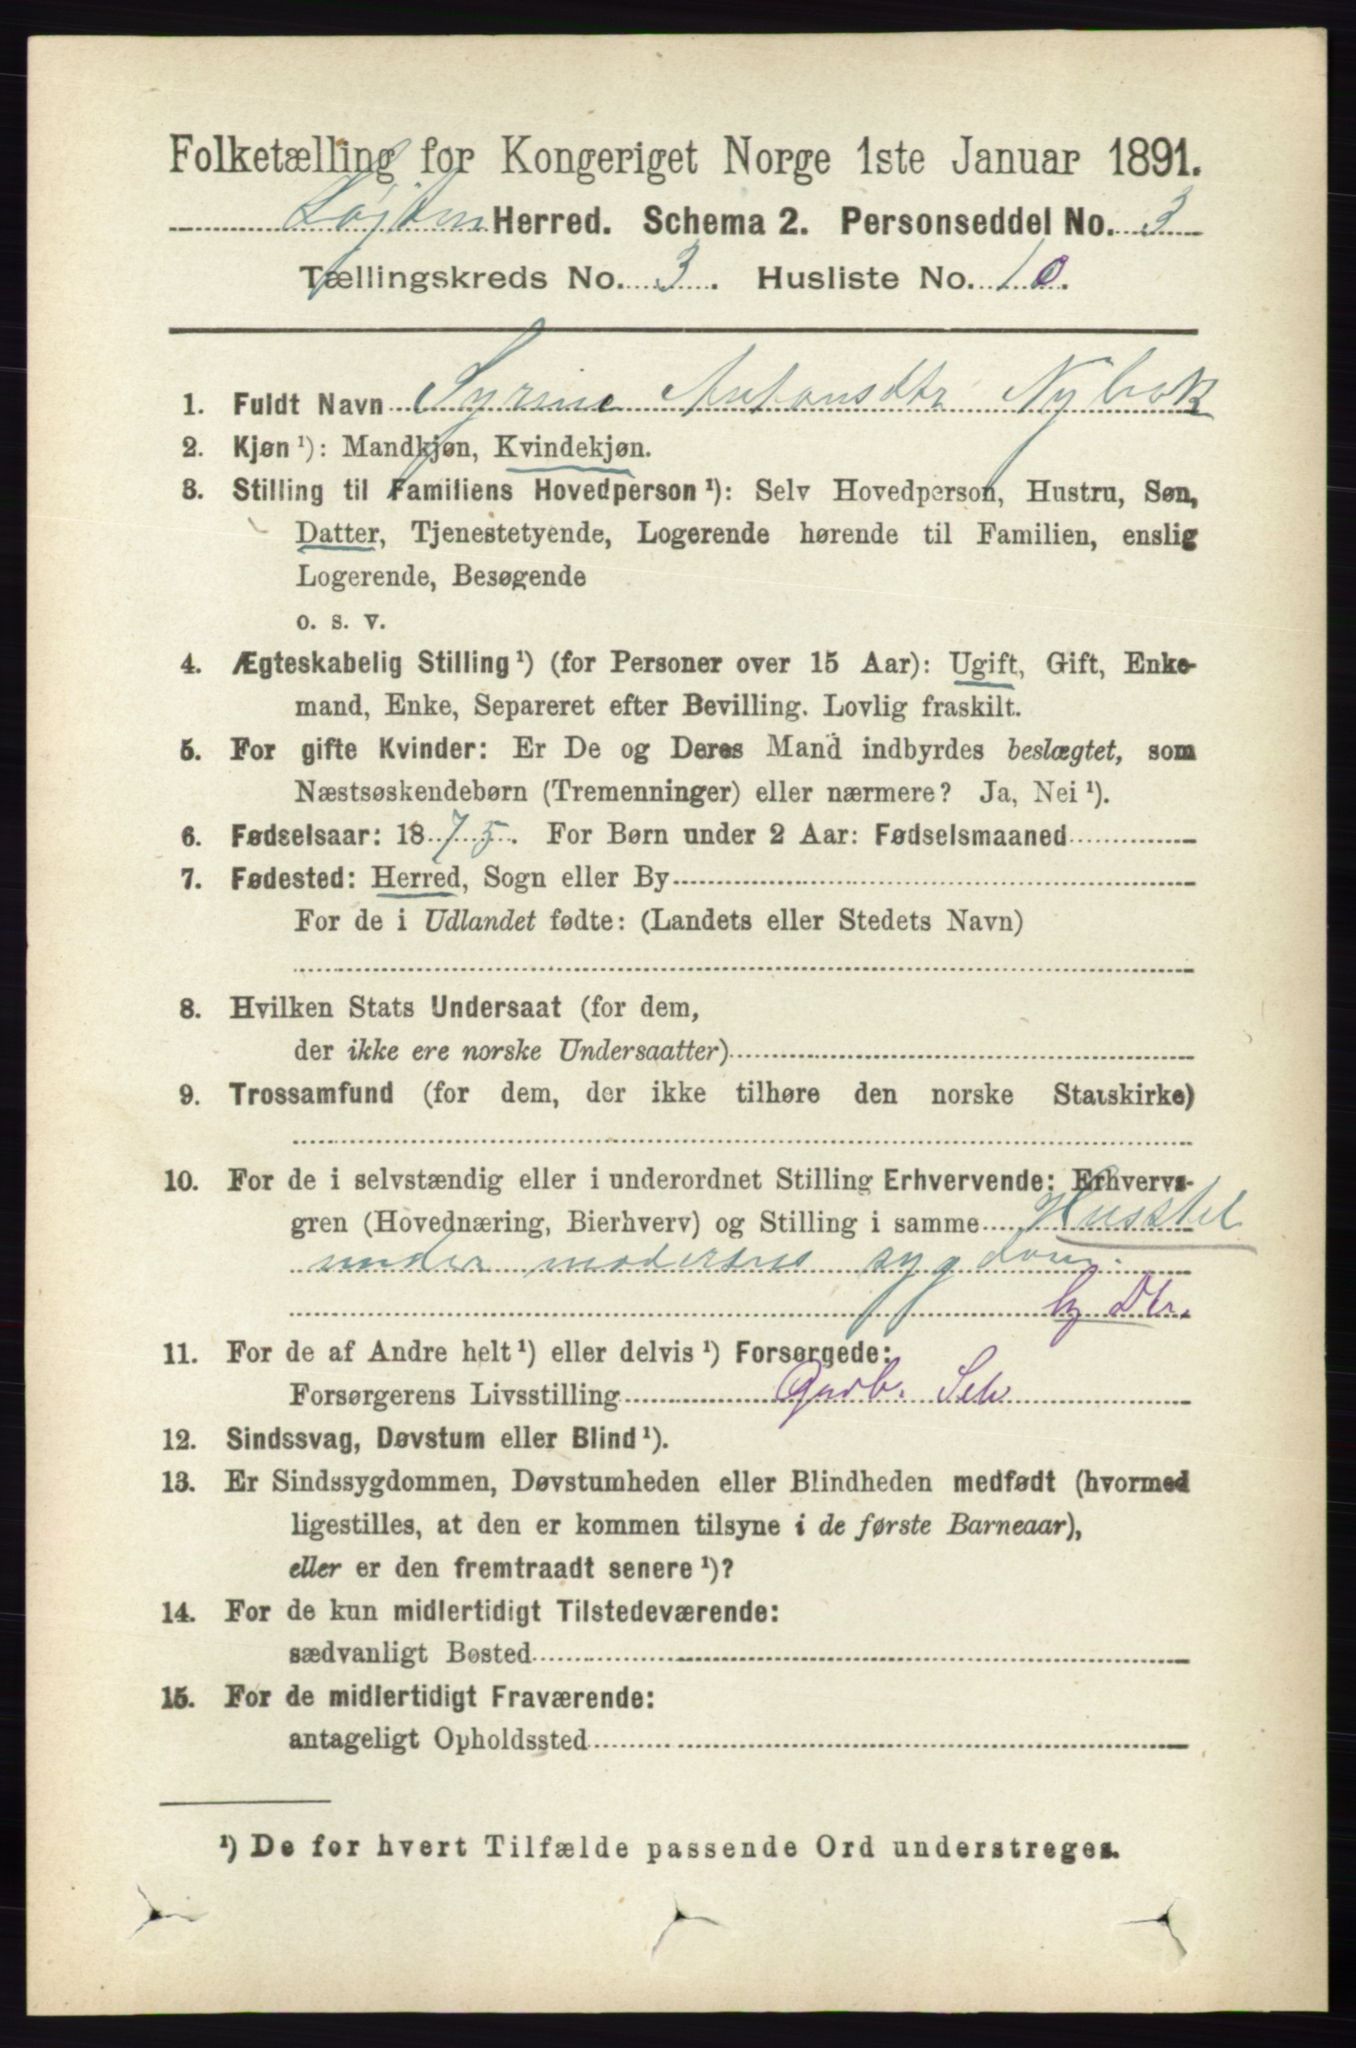 Folketælling for Kongeriget Norge 1ste Januar 1891.
Løjten Herred. Schema 2. Personseddel No. 3
Tællingskreds No. 3. Husliste No. 10.
1. Fuldt Navn Syrine Antonsdtr Nybak
2. Kjøn ¹): Mandkjøn, Kvindekjøn.
3. Stilling til Familiens Hovedperson ¹): Selv Hovedperson, Hustru, Søn,
Datter, Tjenestetyende, Logerende hørende til Familien, enslig
Logerende, Besøgende
o. s. v.
4. Ægteskabelig Stilling ¹) (for Personer over 15 Aar): Ugift, Gift, Enke-
mand, Enke, Separeret efter Bevilling. Lovlig fraskilt.
5. For gifte Kvinder: Er De og Deres Mand indbyrdes beslægtet, som
Næstsøskendebørn (Tremenninger) eller nærmere? Ja, Nei ¹).
6. Fødselsaar: 1875. For Børn under 2 Aar: Fødselsmaaned
7. Fødested: Herred, Sogn eller By
For de i Udlandet fødte: (Landets eller Stedets Navn)
8. Hvilken Stats Undersaat (for dem,
der ikke ere norske Undersaatter)
9. Trossamfund (for dem, der ikke tilhøre den norske Statskirke)
10. For de i selvstændig eller i underordnet Stilling Erhvervende: Erhvervs-
gren (Hovednæring, Bierhverv) og Stilling i samme Husstel
under moderens sygdom.
hj Dtr.
11. For de af Andre helt ¹) eller delvis ¹) Forsørgede:
Forsørgerens Livsstilling Gaardb. Selv
12. Sindssvag, Døvstum eller Blind ¹).
13. Er Sindssygdommen, Døvstumheden eller Blindheden medfødt (hvormed
ligestilles, at den er kommen tilsyne i de første Barneaar),
eller er den fremtraadt senere ¹)?
14. For de kun midlertidigt Tilstedeværende:
sædvanligt Bosted
15. For de midlertidigt Fraværende:
antageligt Opholdssted
¹) De for hvert Tilfælde passende Ord understreges.